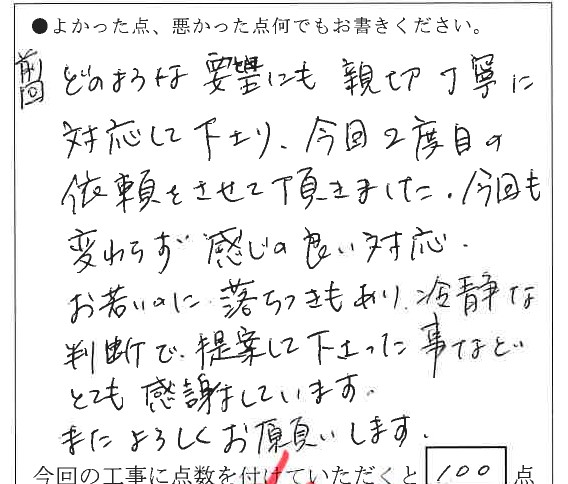 ●よかった点、悪かった点何でもお書きください。
前回 どのような要望にも親切丁寧に
対応して下さり、今回2度目の
依頼をさせて頂きました。今回も
変わらず感じの良い対応。
お若いのに落ちつきもあり、冷静な
判断で、提案して下さった事など
とても感謝しています。
またよろしくお願いします。
今回の工事に点数を付けていただくと 100 点